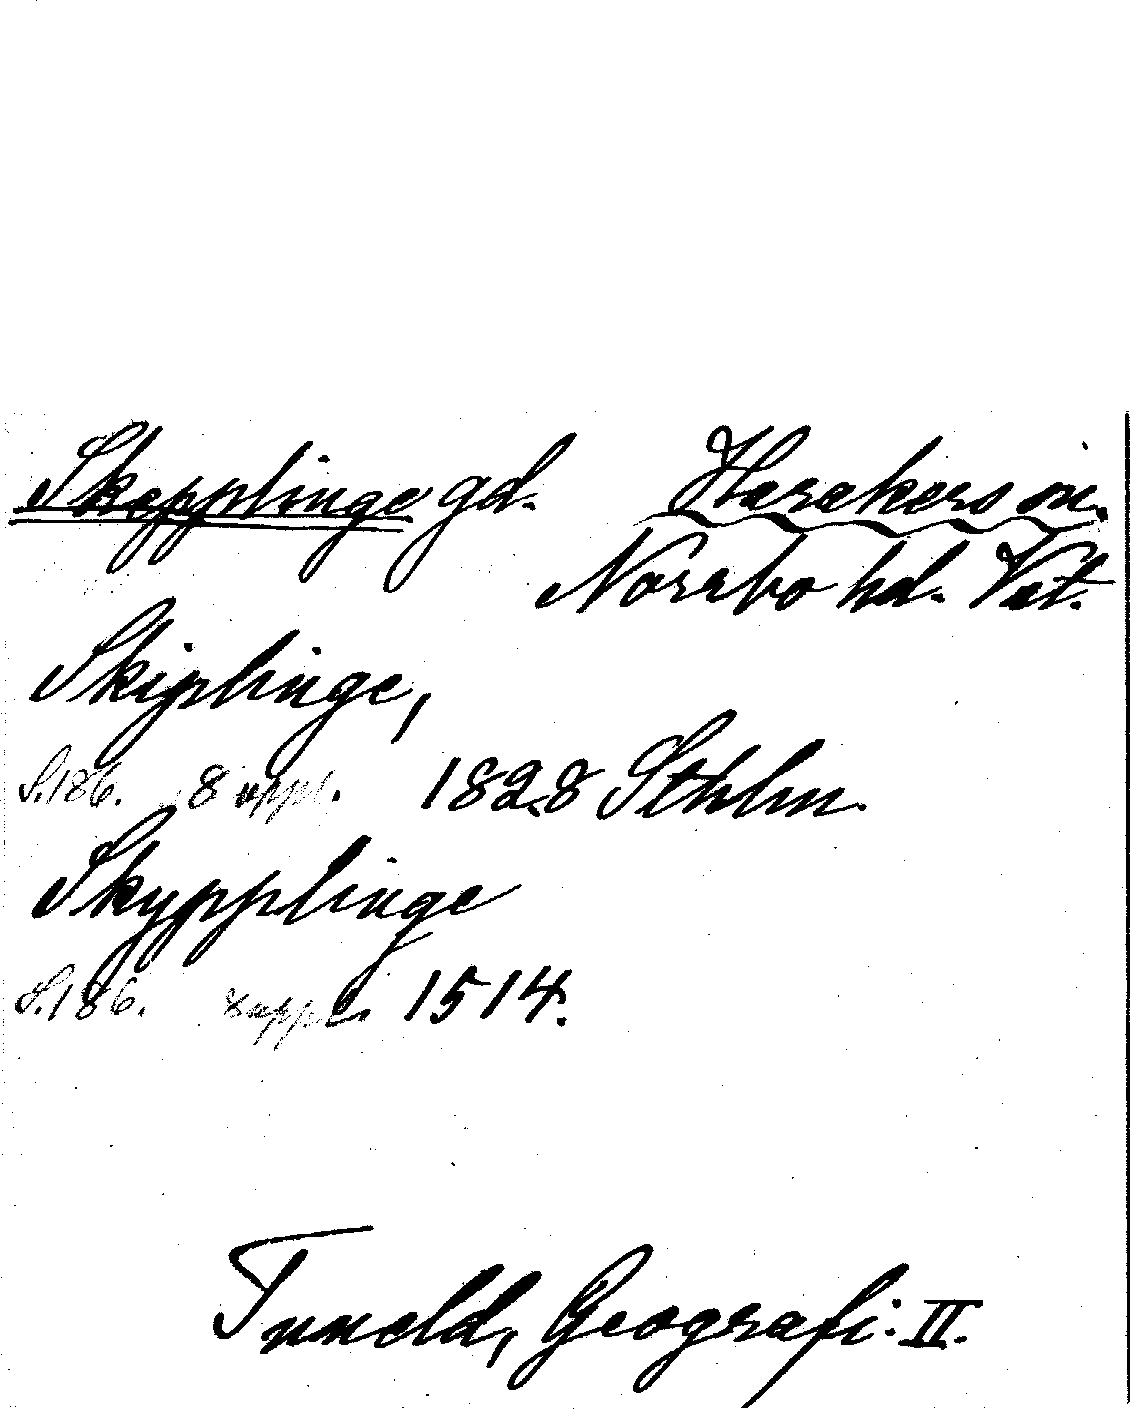 Skepplinge gd. Harakers sn.
Norrbo hd. Vstl.
Skiplinge,
S. 186. 8 uppl. 1828 Sthlm.
Skypplinge
S. 186. 8 uppl. 1514.
Tuneld, Geografi. II.